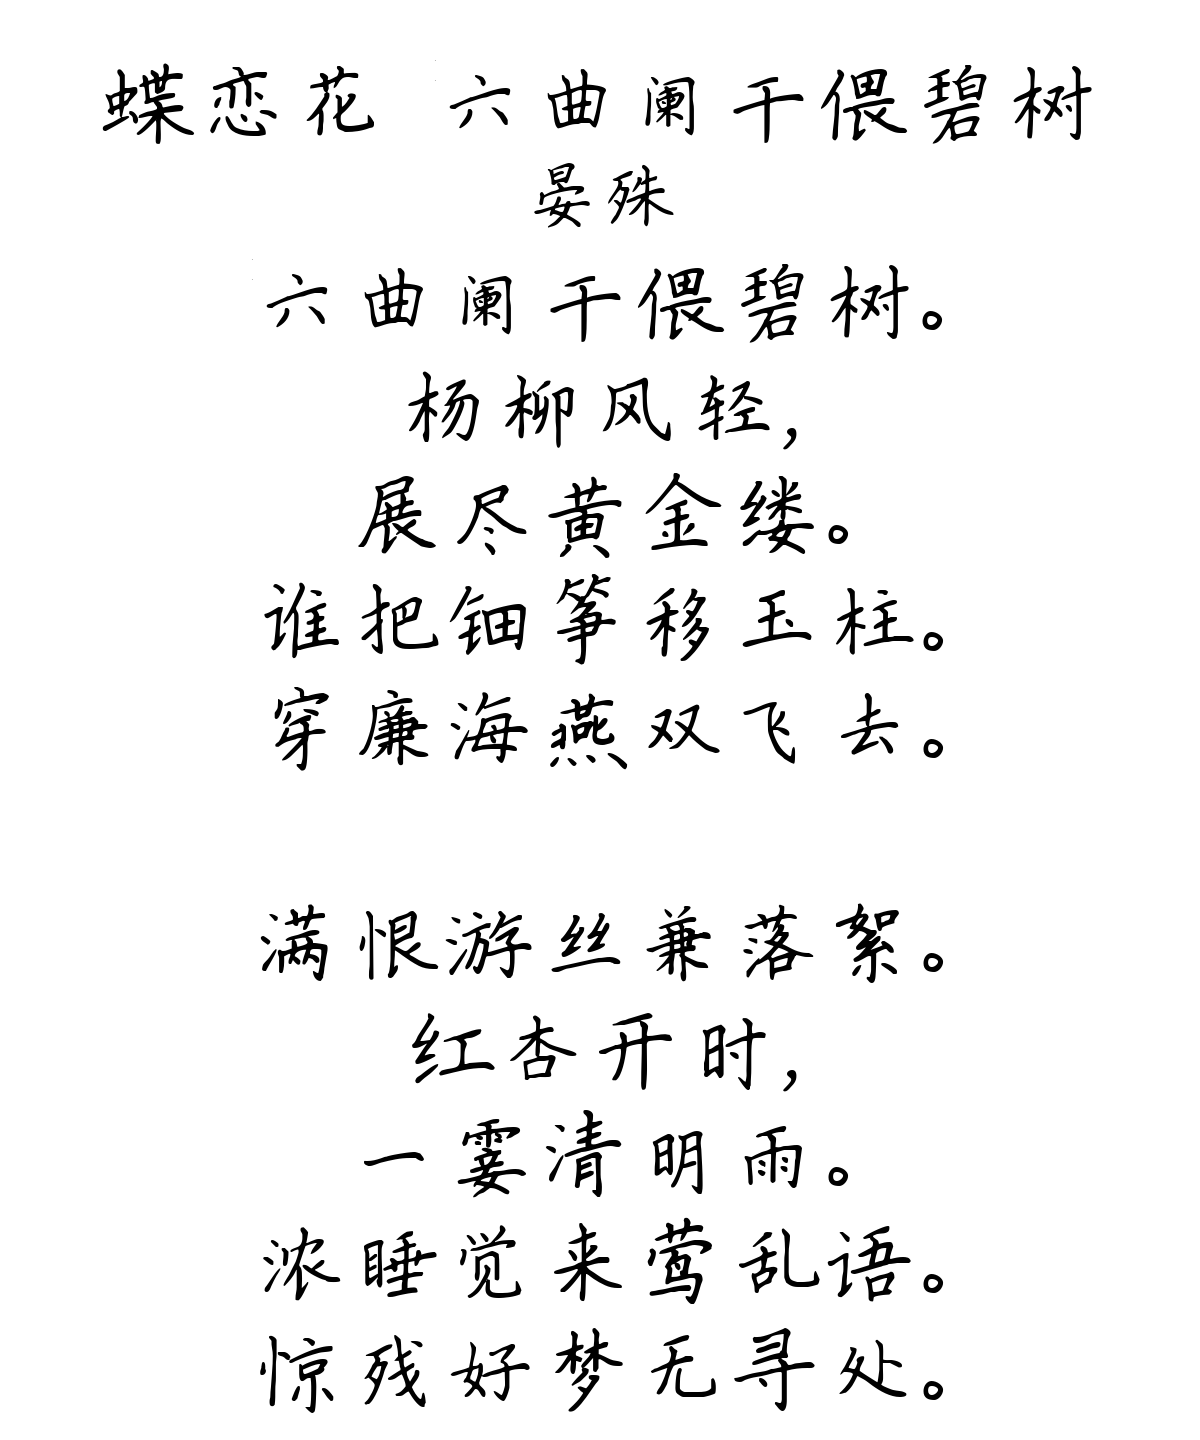 蝶恋花 六曲阑干偎碧树
晏殊
六曲阑干偎碧树。
杨柳风轻,
展尽黄金缕。
谁把钿筝移玉柱。
穿廉海燕双飞去。
满恨游丝兼落絮。
红杏开时,
一霎清明雨。
浓睡觉来莺乱语。
惊残好梦无寻处。